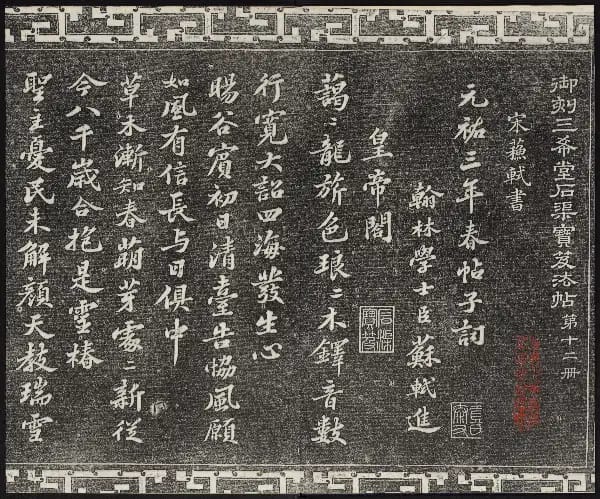 御刻三希堂石渠寶笈法帖 第十二冊
宋蘓軾書
元祐三年春帖子詞
翰林學士臣蘇軾進
皇帝閣
石渠寶笈
藹〻龍旂色琅〻木鐸音數
行寬大詔四海發生心
暘谷賓初日清臺告協風願
如風有信長与日俱中
草木漸知春萌芽處〻新從
今八千歲合抱是靈椿
聖主憂民未解顏天教瑞雪